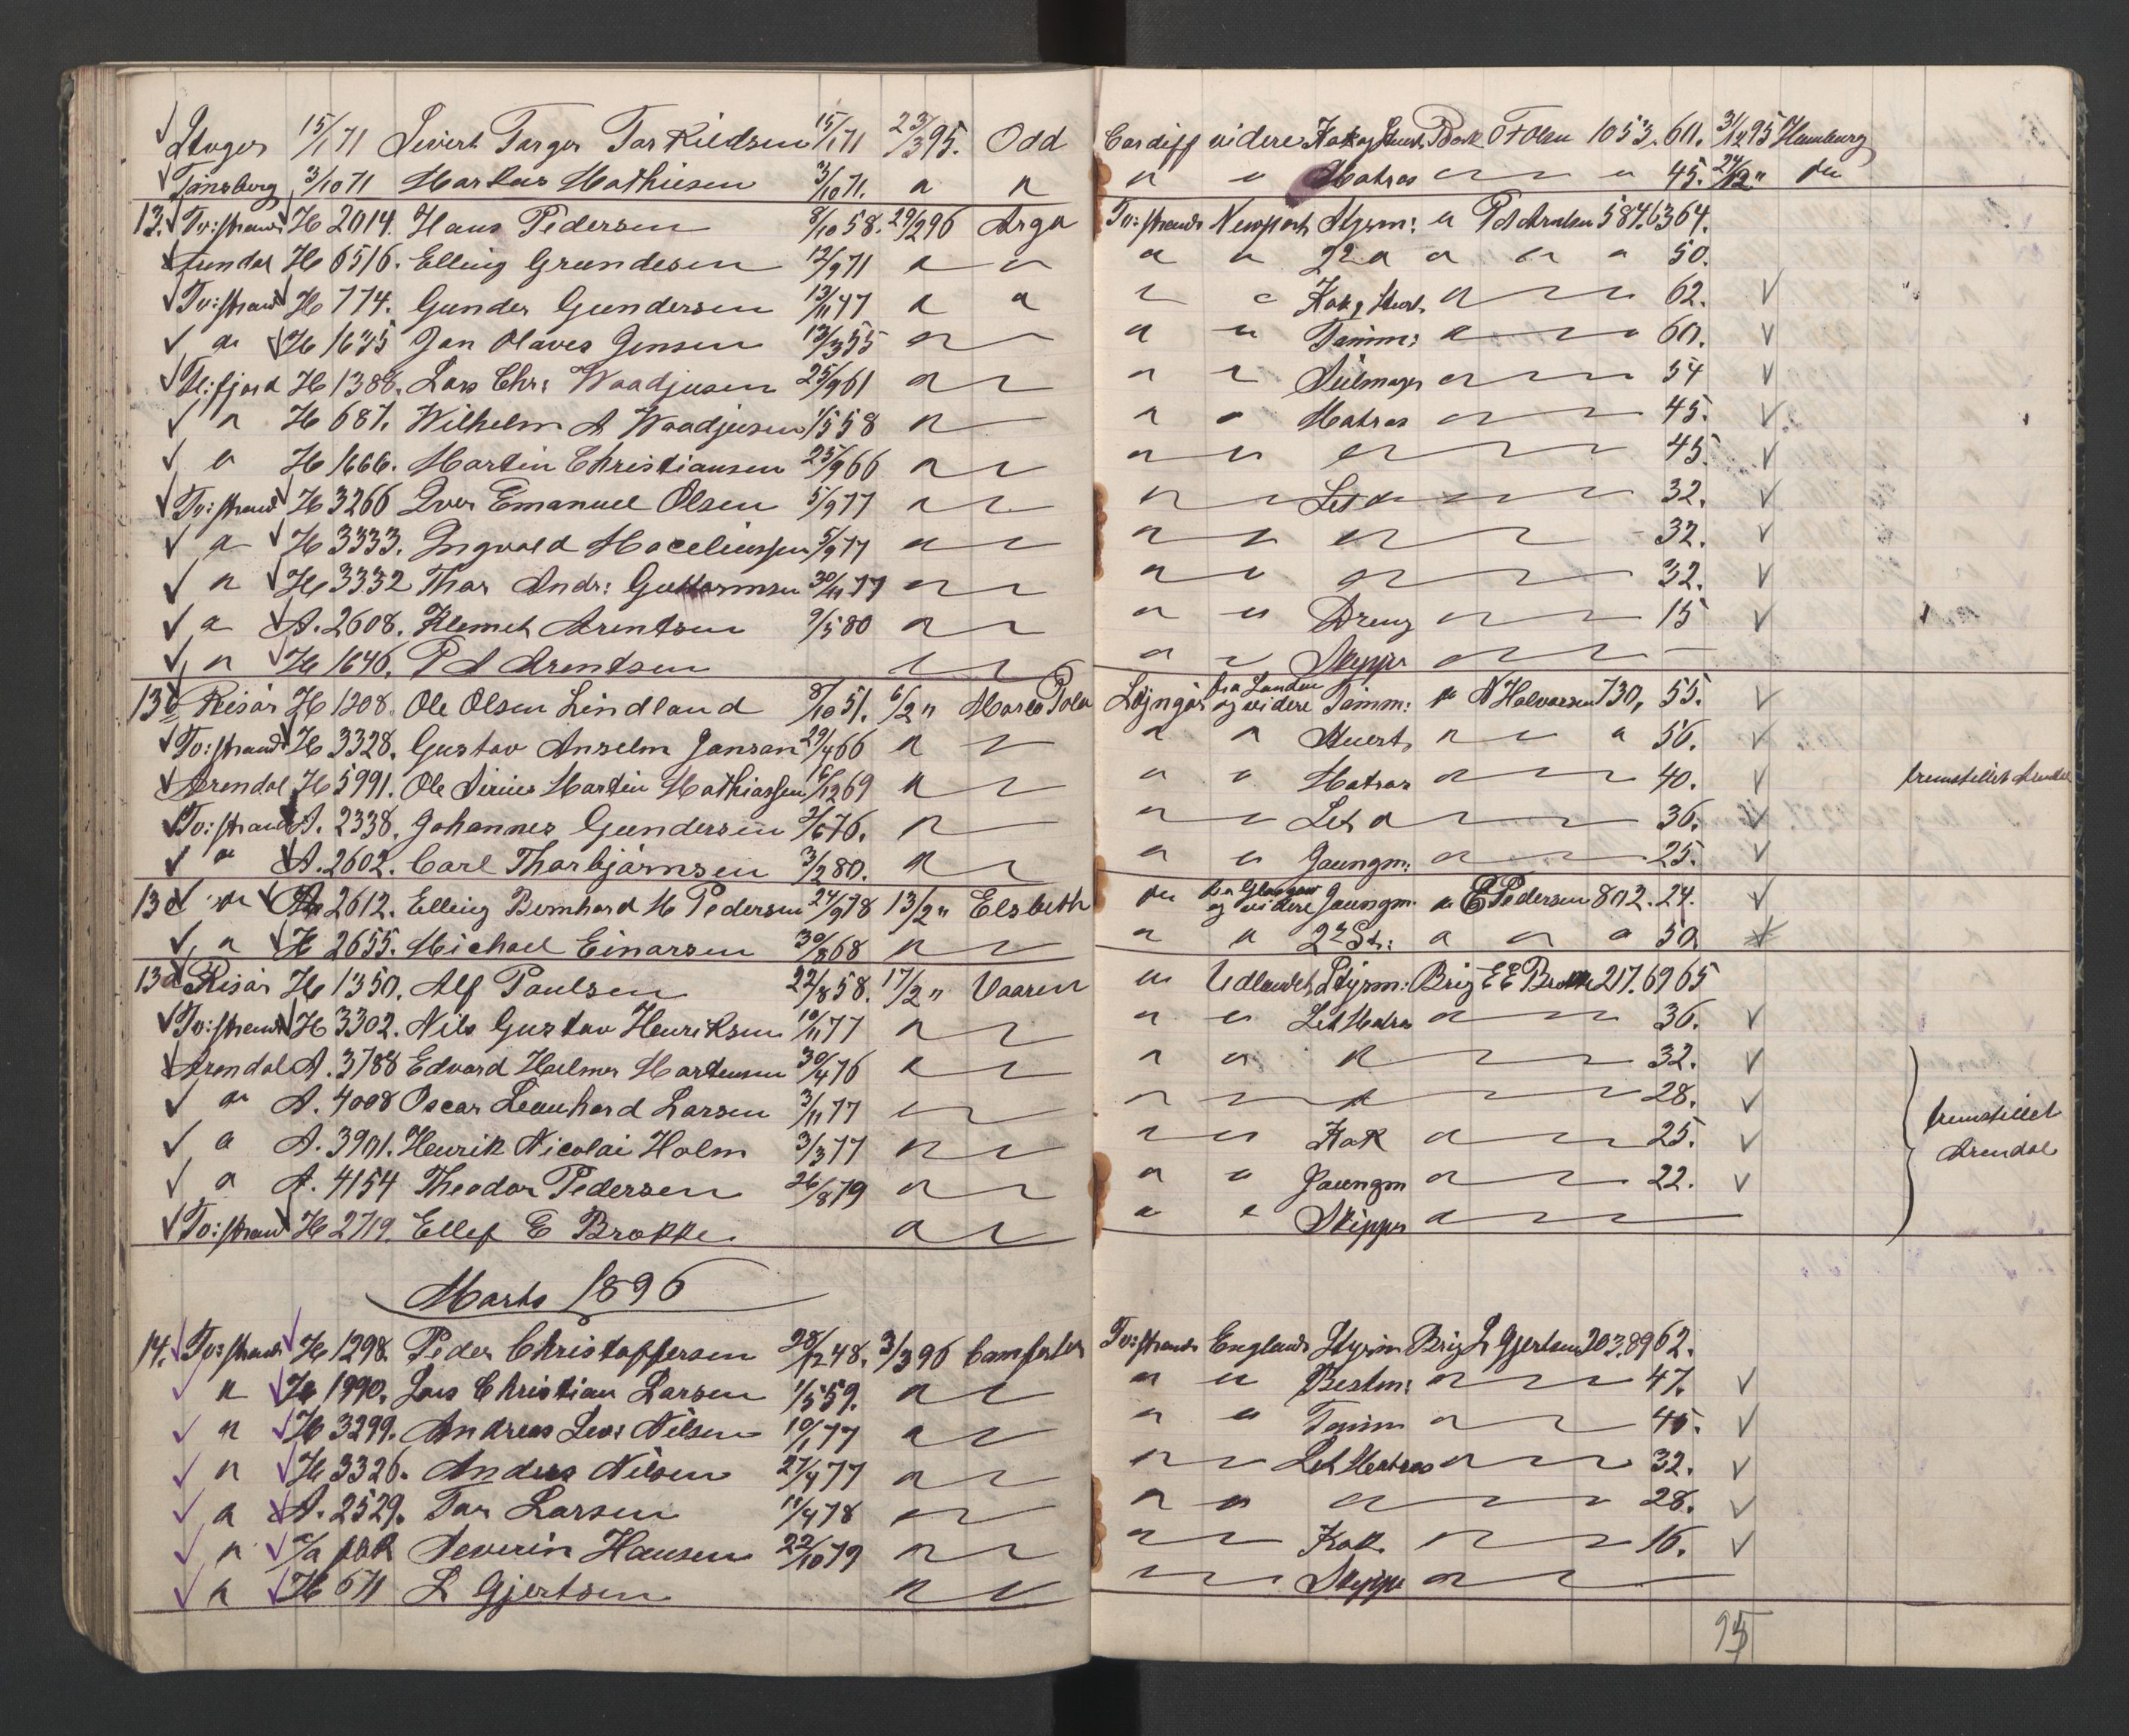 15/1 71 Sivert Targer Tarkildsen 15/1 71 23/3 95. Odd Cardiff videre Kok og Stuert Bark O F Olsen 1053. 60. 31/12 95 Hamburg
Tønsberg 3/10 71 Markus Mathisen 3/10 71. " " " " Matros " " 45. 24/12 " do
13. Tv:strand H 2014. Hans Pedersen 8/10 58. 29/2 96 Arga Tv:strand Newport Styrm: " P A Arntsen 587.63 64.
Arendal H 6516. Elling Grundesen 12/9 71 " " " " 2den " " " " 50.
Tv:strand H 774. Gunder Gundersen 13/11 47 " " " " Kok & Stuert " 62.
" H 1635 Jan Olaves Jensen 13/3 55 " " " Tømm: " 60.
Fl:fjord H 1388. Lars Chr: Waadjusen 25/9 61 " " " Seilmager " 54
" H 687. Wilhelm A Waadjusen 1/5 58 " " " Matros " 45.
" H 1666. Martin Christiansen 25/9 66 " " " " 45.
Tv:strand H 3266 Iver Emanuel Olsen 5/9 77 " " " Let " 32.
" H 3333. Ingvald 5/9 77 " " " " 32.
" H 3332 Thor Andr: Guttormsen 30/11 77 " " " " 32.
" A. 2608. Klemet Arentsen 9/5 80 " " " Dreng " 15
" H 1646. P A Arentsen " " " Skipper " —
13b Risør H 1208. Ole Olsen Lindland 8/10 51. 6/2 " Marco Polo Lyngør fra London og videre Tømm: " N Halvorsen 730, 55.
Tv:strand H 3328. Gustav Anselm Jansen 29/4 66 " " " Stuert " " " 56.
Arendal H 5991. Ole Sirius Martin Mathiassen 16/12 69 " " " Matros " 40. fremstillet Arendal
Tv:strand A. 2338. Johannes Gundersen 2/6 76. " " " Let " 36.
" A. 2602. Carl Thorbjørnsen 3/2 80. " " " Jaungm: " 25.
13c " A 2612. Elling Bernhard H Pedersen 24/9 78 13/2 " Elsbeth do fra Glasgow og videre Jaungm. " E Pedersen 802. 24.
" H 2655. Michael Einarsen 30/8 68 " " " 2den St: " " " 50.
13d Risør H 1350. Alf Paulsen 22/8 58. 17/2 " Vaaren " Udlandet Styrm: Brig E E Brokke 217.69 65
Tv:strand H 3302. Nils Gustav Henriksen 10/11 77 " " " Let Matros " 36.
Arendal A. 3788 Edvard Helmer Martensen 30/4 76 " " " " 32.
" A. 4008 Oscar Leonhard Larsen 3/11 77 " " " " 28. fremstillet
" A. 3901. Henrik Nicolai Holm 3/3 77 " " " Kok " 25. Arendal
" A. 4154 Theodor Pedersen 26/8 79 " " " Jaungm " 22.
Tv:strand H 2719. Ellef E Brokke. " " " Skipper "
Marts 1896
14. Tv:strand H 1298. Peder Christoffersen 28/12 48. 3/3 96 Tv:strand England Styrm Brig L Gjertsen 203.89 62.
" H 1990. Lars Christian Larsen 1/5 59. " " " Bestm: " 47.
" H 3299. Andreas Nilsen 10/1 77 " " " Tømm " 45.
" H 3326. Anders Nilsen 27/4 77 " " " Let Matros " 32.
" A. 2529. Tar Larsen 11/4 78 " " " " 28.
" Severin Hansen 22/10 79 " " " Kok " 16.
" H 671 L Gjertsen " " " Skipper "
95